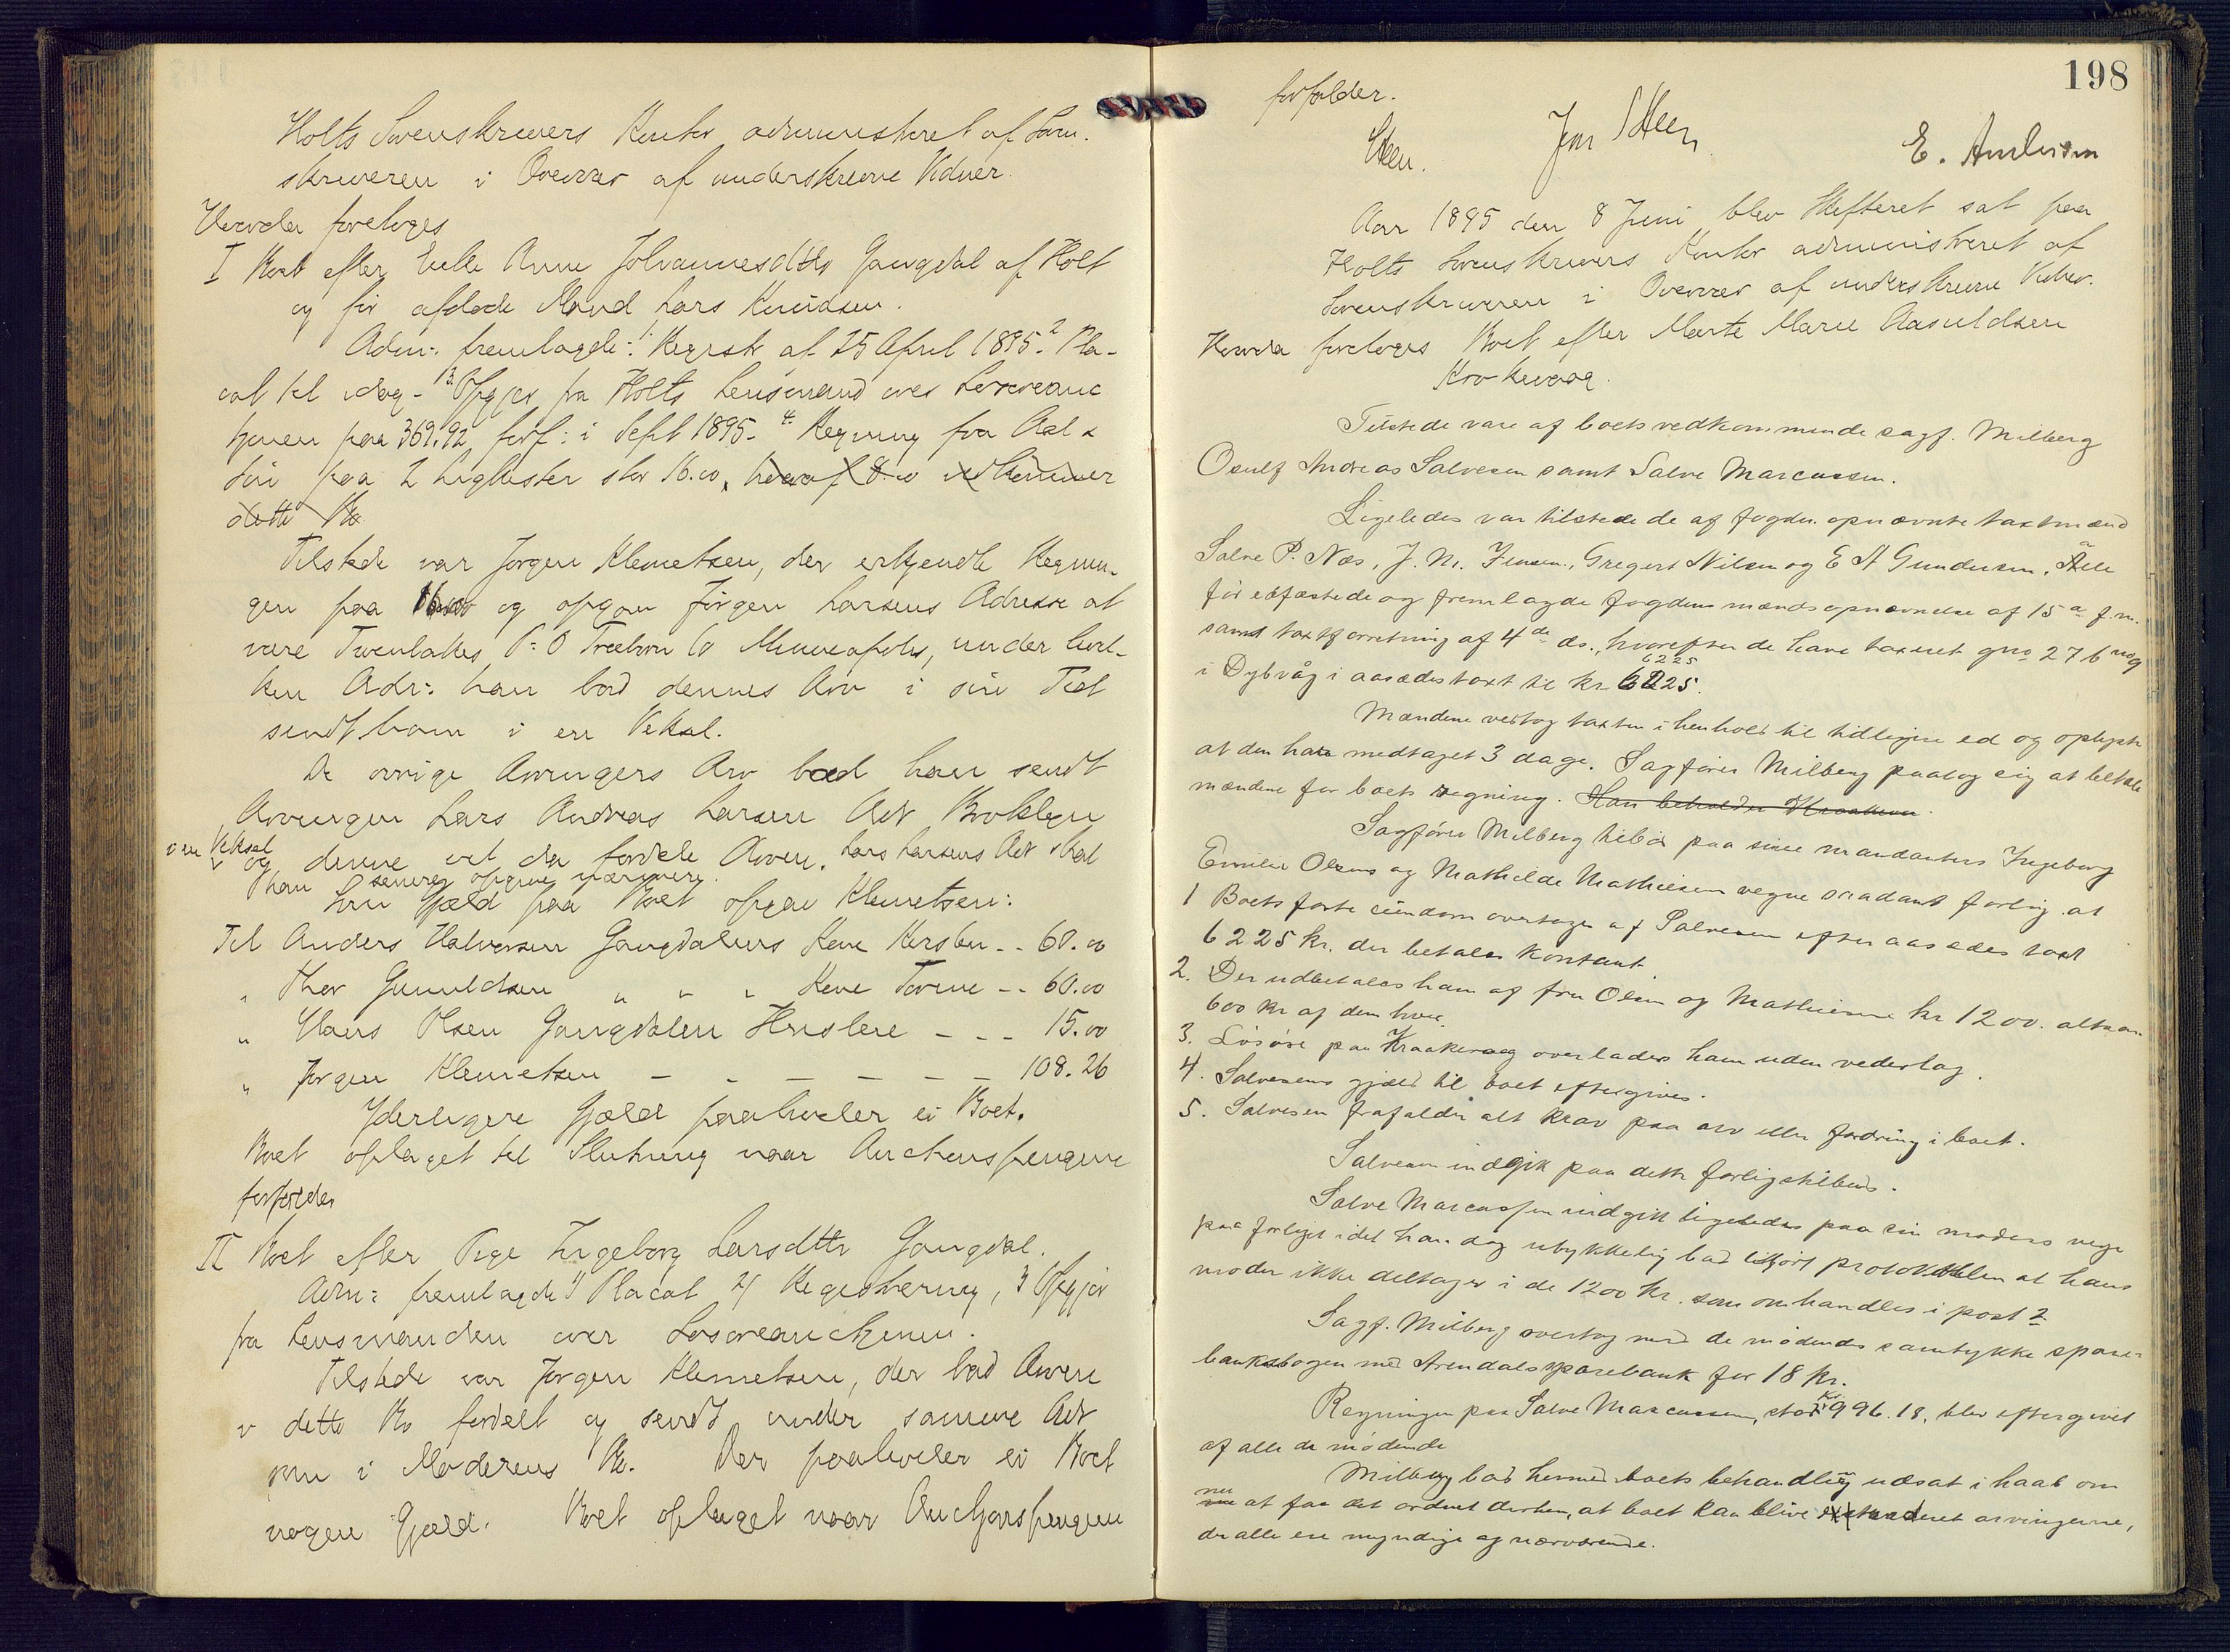 Holts Sorenskriveris Kontor administreret af Soren-
skriveren i Overvær af underskrevne Vidner.
Hvorda foretoges
I Boet efter Enke Anne Johannesdtr Gangdal af Holt
og før afdøde Mand Lars Knudsen.
Adm: fremlagde: 1. Registr. af 25 April 1895. 2 Pla-
cat til idag - 3. Opgjør fra Holts Lensmand over Løsøreauc
tjonen paa 369.92 forf: i Sept 1895. 4. Regning fra
paa 2 Ligkister stor 16.00, heraf 8.00 vedkommer
dette Bo
Tilstede var Jørgen Klemetsen, der erkjendte Regnin-
gen paa 16.00 og opgav Jørgen Larsens Adresse at
være P: O Minneapolis, under hvil-
ken Adr: han bad dennes Arv i sin Tid
sendt ham i en Veksel.
De øvrige Arvingers Arv bad han sendt
Arvingen Lars Andreas Larsen Adr Brooklyn
i en Veksel og denne vil da fordele Arven. Lars Larsens Adr skal
han senere opgive nærmere.
Som Gjæld paa Boet opgav Klemetsen:
Til Anders Halvorsen Gangdalens Kone Kirsten -- 60.00
" Thor Gunuldsen " " " Kone Torine -- 60.00
" Hans Olsen Gangdalen --- 15.00
" Jørgen Klemetsen - - - - - - 108.26
Yderligere Gjæld paahviler ei Boet.
Boet optaget til Slutning naar Auctionspengene
forfalder
II Boet efter Pige Ingeborg Larsdtr Gangdal.
Adm: fremlagde 1) Placat 2) Registrering, 3 Opgjør
fra Lensmanden over Løsøreauctionen.
Tilstede var Jørgen Klemetsen, der bad Arven
i dette Bo fordelt og sendt under samme Adr
som i Moderens Bo. Der paahviler ei Boet
nogen Gjæld. Boet optaget naar Auctjonspengene
198
forfalder.
Steen. Jens Steen E. Andersen
Aar 1895 den 8 Juni blev Skifteret sat paa
Holts Sorenskrivers Kontor administreret af
Sorenskriveren i Overvær af underskrevne Vidner.
Hvorda foretoges Boet efter Marte Marie Aasuldsen
Krokevaag.
Tilstede vare af boets vedkommende sagf. Milberg
Osulf Andreas Salvesen samt Salve Marcussen.
Ligeledes var tilstede de af fogden opnævnte taxtmænd
Salve P. Næs, J. M. Jensen, Gregert Nilsen og E A Gundersen. Alle
før edfæstede og fremlagde fogdens mandsopnævnelse af 15de f.m.
samt taxtforretning af 4de ds., hvorefter de have taxeret gno 276
6225
i Dybvåg i aasædestaxt til kr 6225.
Mændene vedtog taxten i henhold til tidligere ed og oplyste
at den have medtaget 3 dage. Sagfører Milberg paatog sig at betale
mændene for boets regning. Han beholder Kraakevaa
Sagfører Milberg tilbød paa sine mandanters Ingeborg
Emilie Olsens og Mathilde Mathiesens vegne saadant forlig at
1 Boets faste eiendom overtages af Salvesen efter aasædes taxt
6225 kr. der betales kontant.
2. Der udbetales ham af fru Olsen og Mathiesen kr 1200. altsaa
600 kr af dem hver.
3. Løsøre paa Kraakevaag overlades ham uden vederlag.
4. Salvesens gjæld til boet eftergives.
5. Salvesen frafalder alt krav paa arv eller fordring i boet.
Salvesen indgik paa dette forligstilbud.
Salve Marcussen indgik ligeledes paa sin moders vegne
paa forliget idet han dog udtrykkelig bad tilført protokollen at hans
moder ikke deltager i de 1200 kr. som omhandles i post 2
Sagf. Milberg overtog med de mødendes samtykke spare-
banksbogen med Arendals sparebank for 18 kr.
Regningen paa Salve Marcussen, stor kr 996.18, blev eftergivet
af alle de mødende
Milberg bad hermed boets behandling udsat i haab om
nu at faa det ordnet derhen, at boet kan blive extraderet arvingerne,
der alle ere myndige og nærværende.